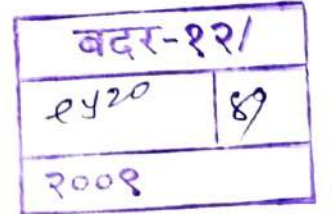 बदर-१२/
१५२०
२००९